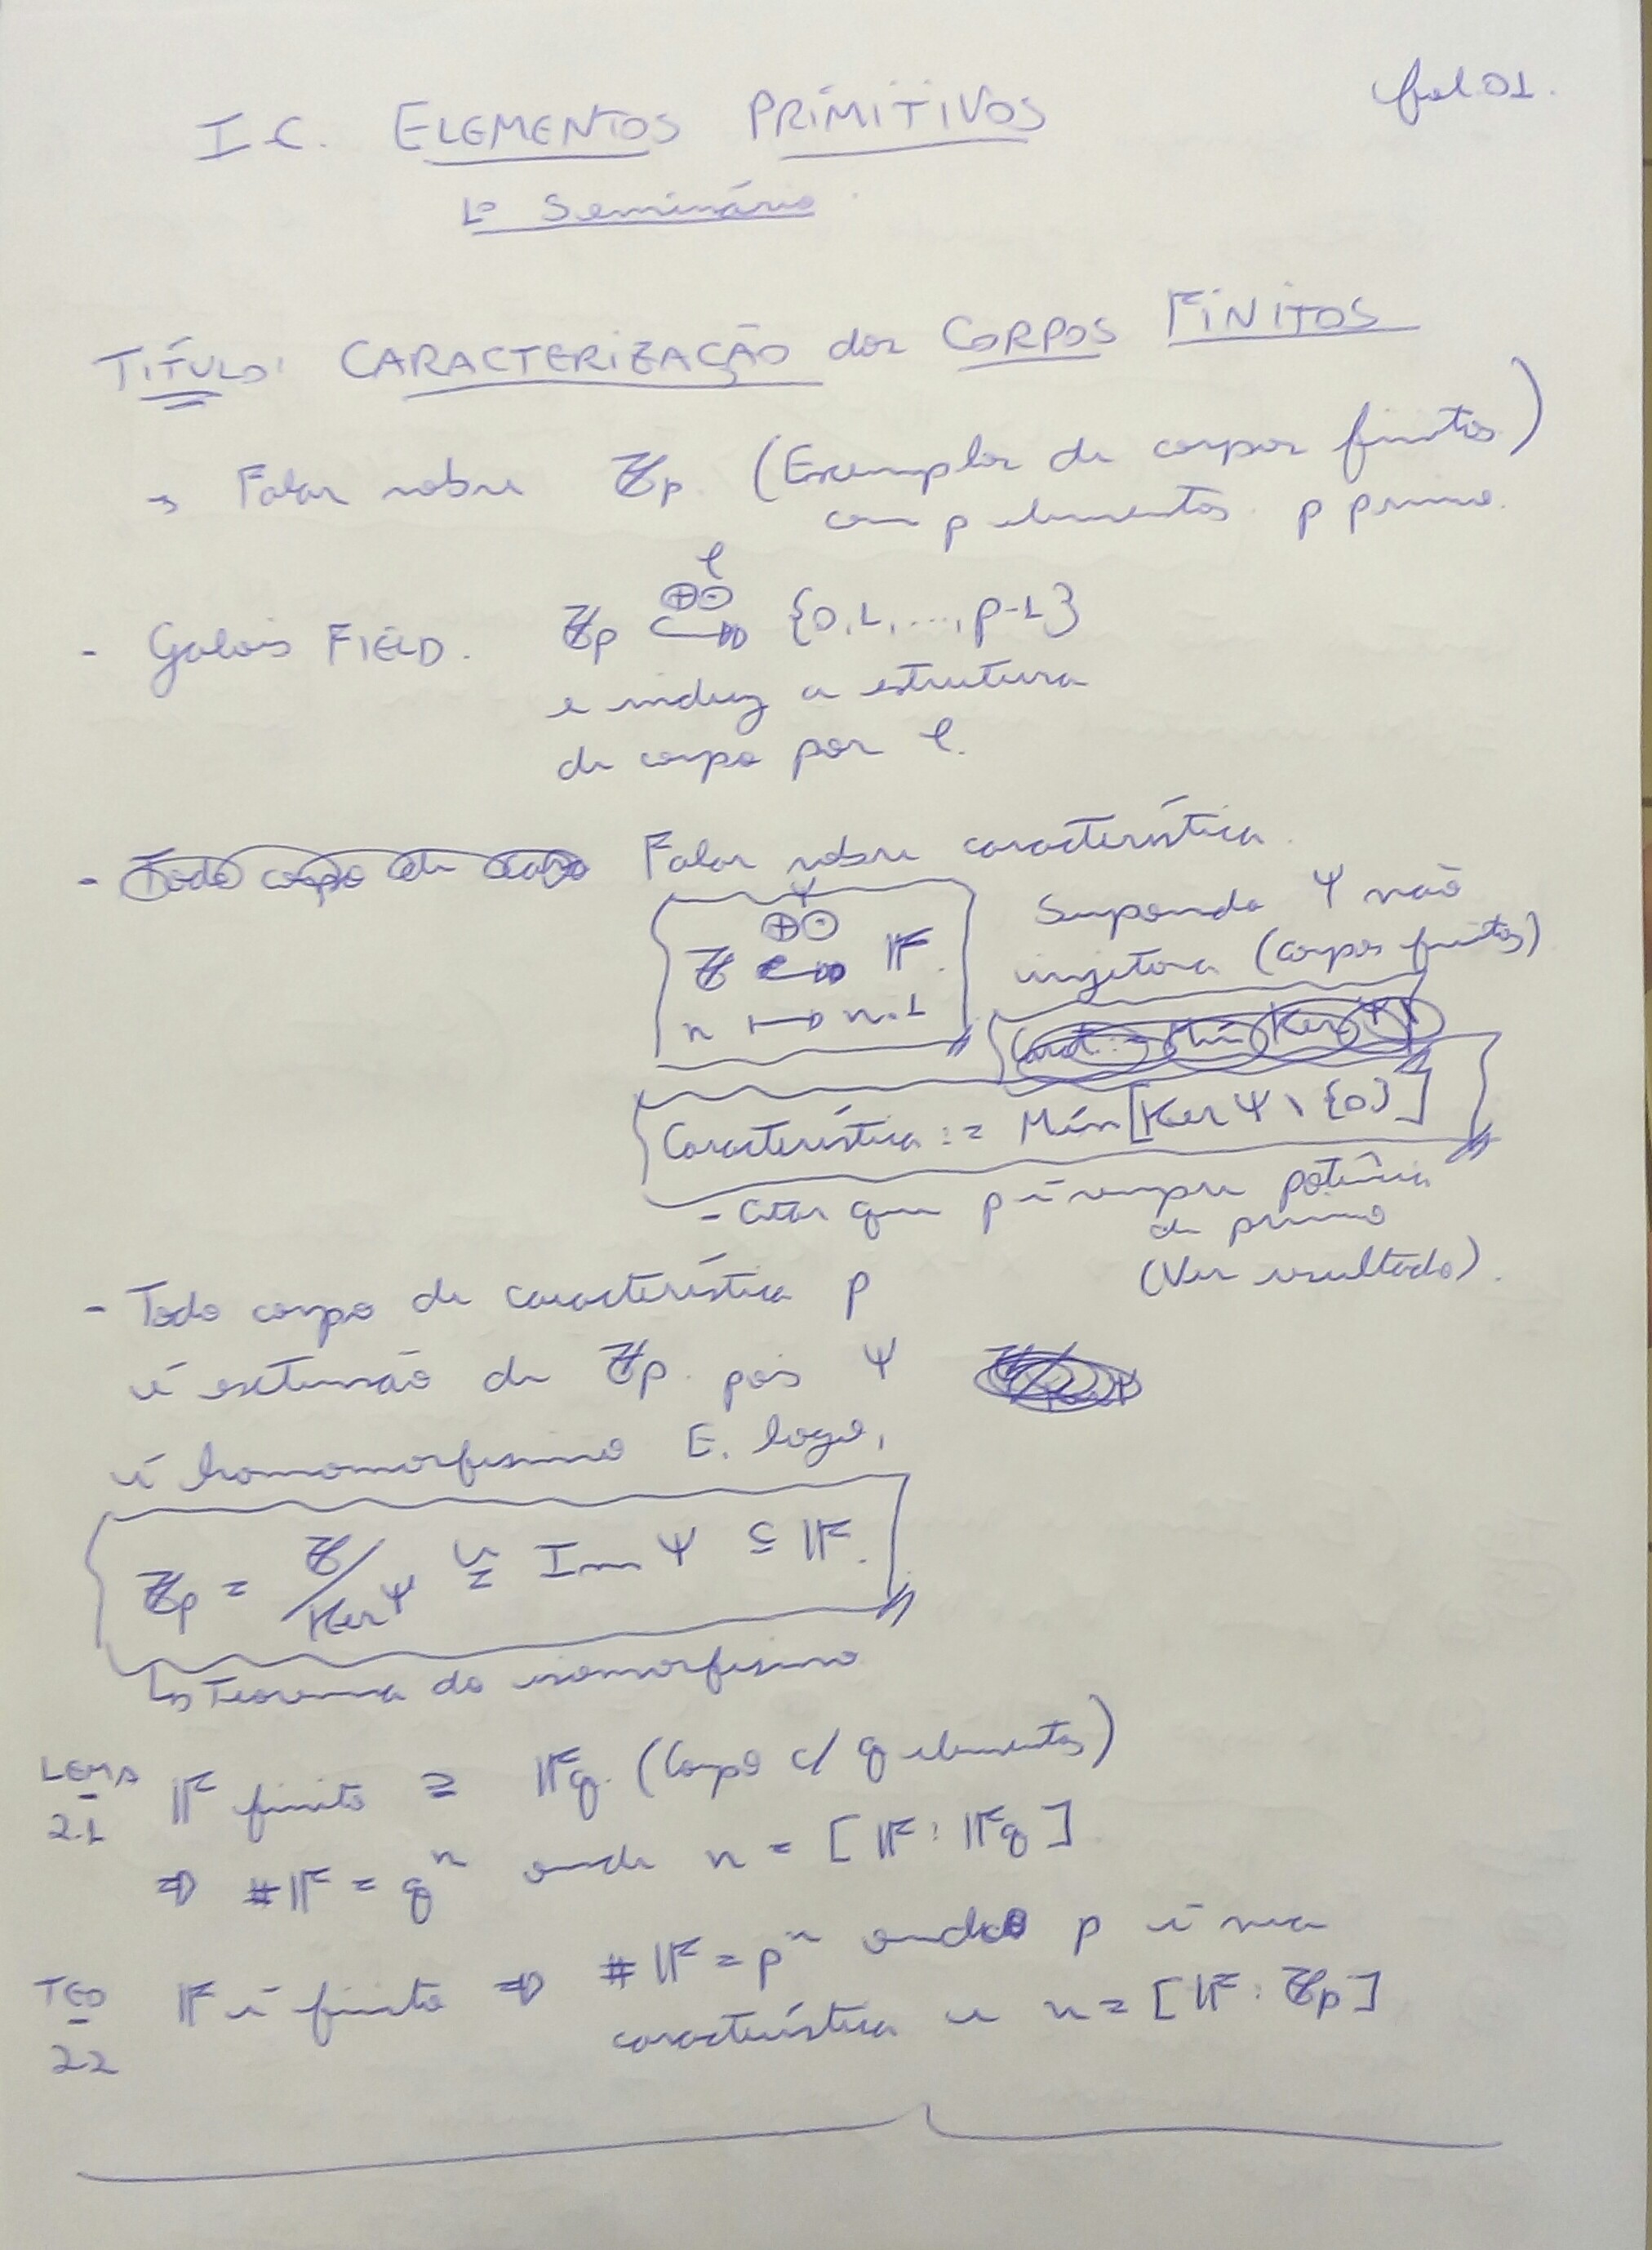 fol. 01.
I.C. ELEMENTOS PRIMITIVOS
1º Seminário
TÍTULO: CARACTERIZAÇÃO dos CORPOS FINITOS
→ Falar sobre ℤp (Exemplos de corpos finitos)
com p elementos. p primo.
- Galois FIELD. ℤp ↪↠ {0, 1, ..., p-1}
φ
⊕⊙
e induz a estrutura
de corpo por φ.
- Falar sobre característica.
Ψ
⊕⊙
ℤ → 𝔽.
n ↦ n.1
Supondo Ψ não
injetora (corpos finitos)
Característica := Mín [Ker Ψ \ {0}]
- Citar que p é sempre potência
de primo
(Ver resultado).
- Todo corpo de característica p
é extensão de ℤp. pois Ψ
é homomorfismo E. logo,
ℤp = ℤ/Ker Ψ ≅ Im Ψ ⊆ 𝔽.
↳ Teorema do isomorfismo
LEMA 2.1 𝔽 finito ⊇ 𝔽q. (Corpo c/ q elementos)
⇒ #𝔽 = qⁿ onde n = [𝔽 : 𝔽q]
TEO 2.2 𝔽 é finito ⇒ #𝔽 = pⁿ onde p é sua
característica e n = [𝔽 : ℤp]